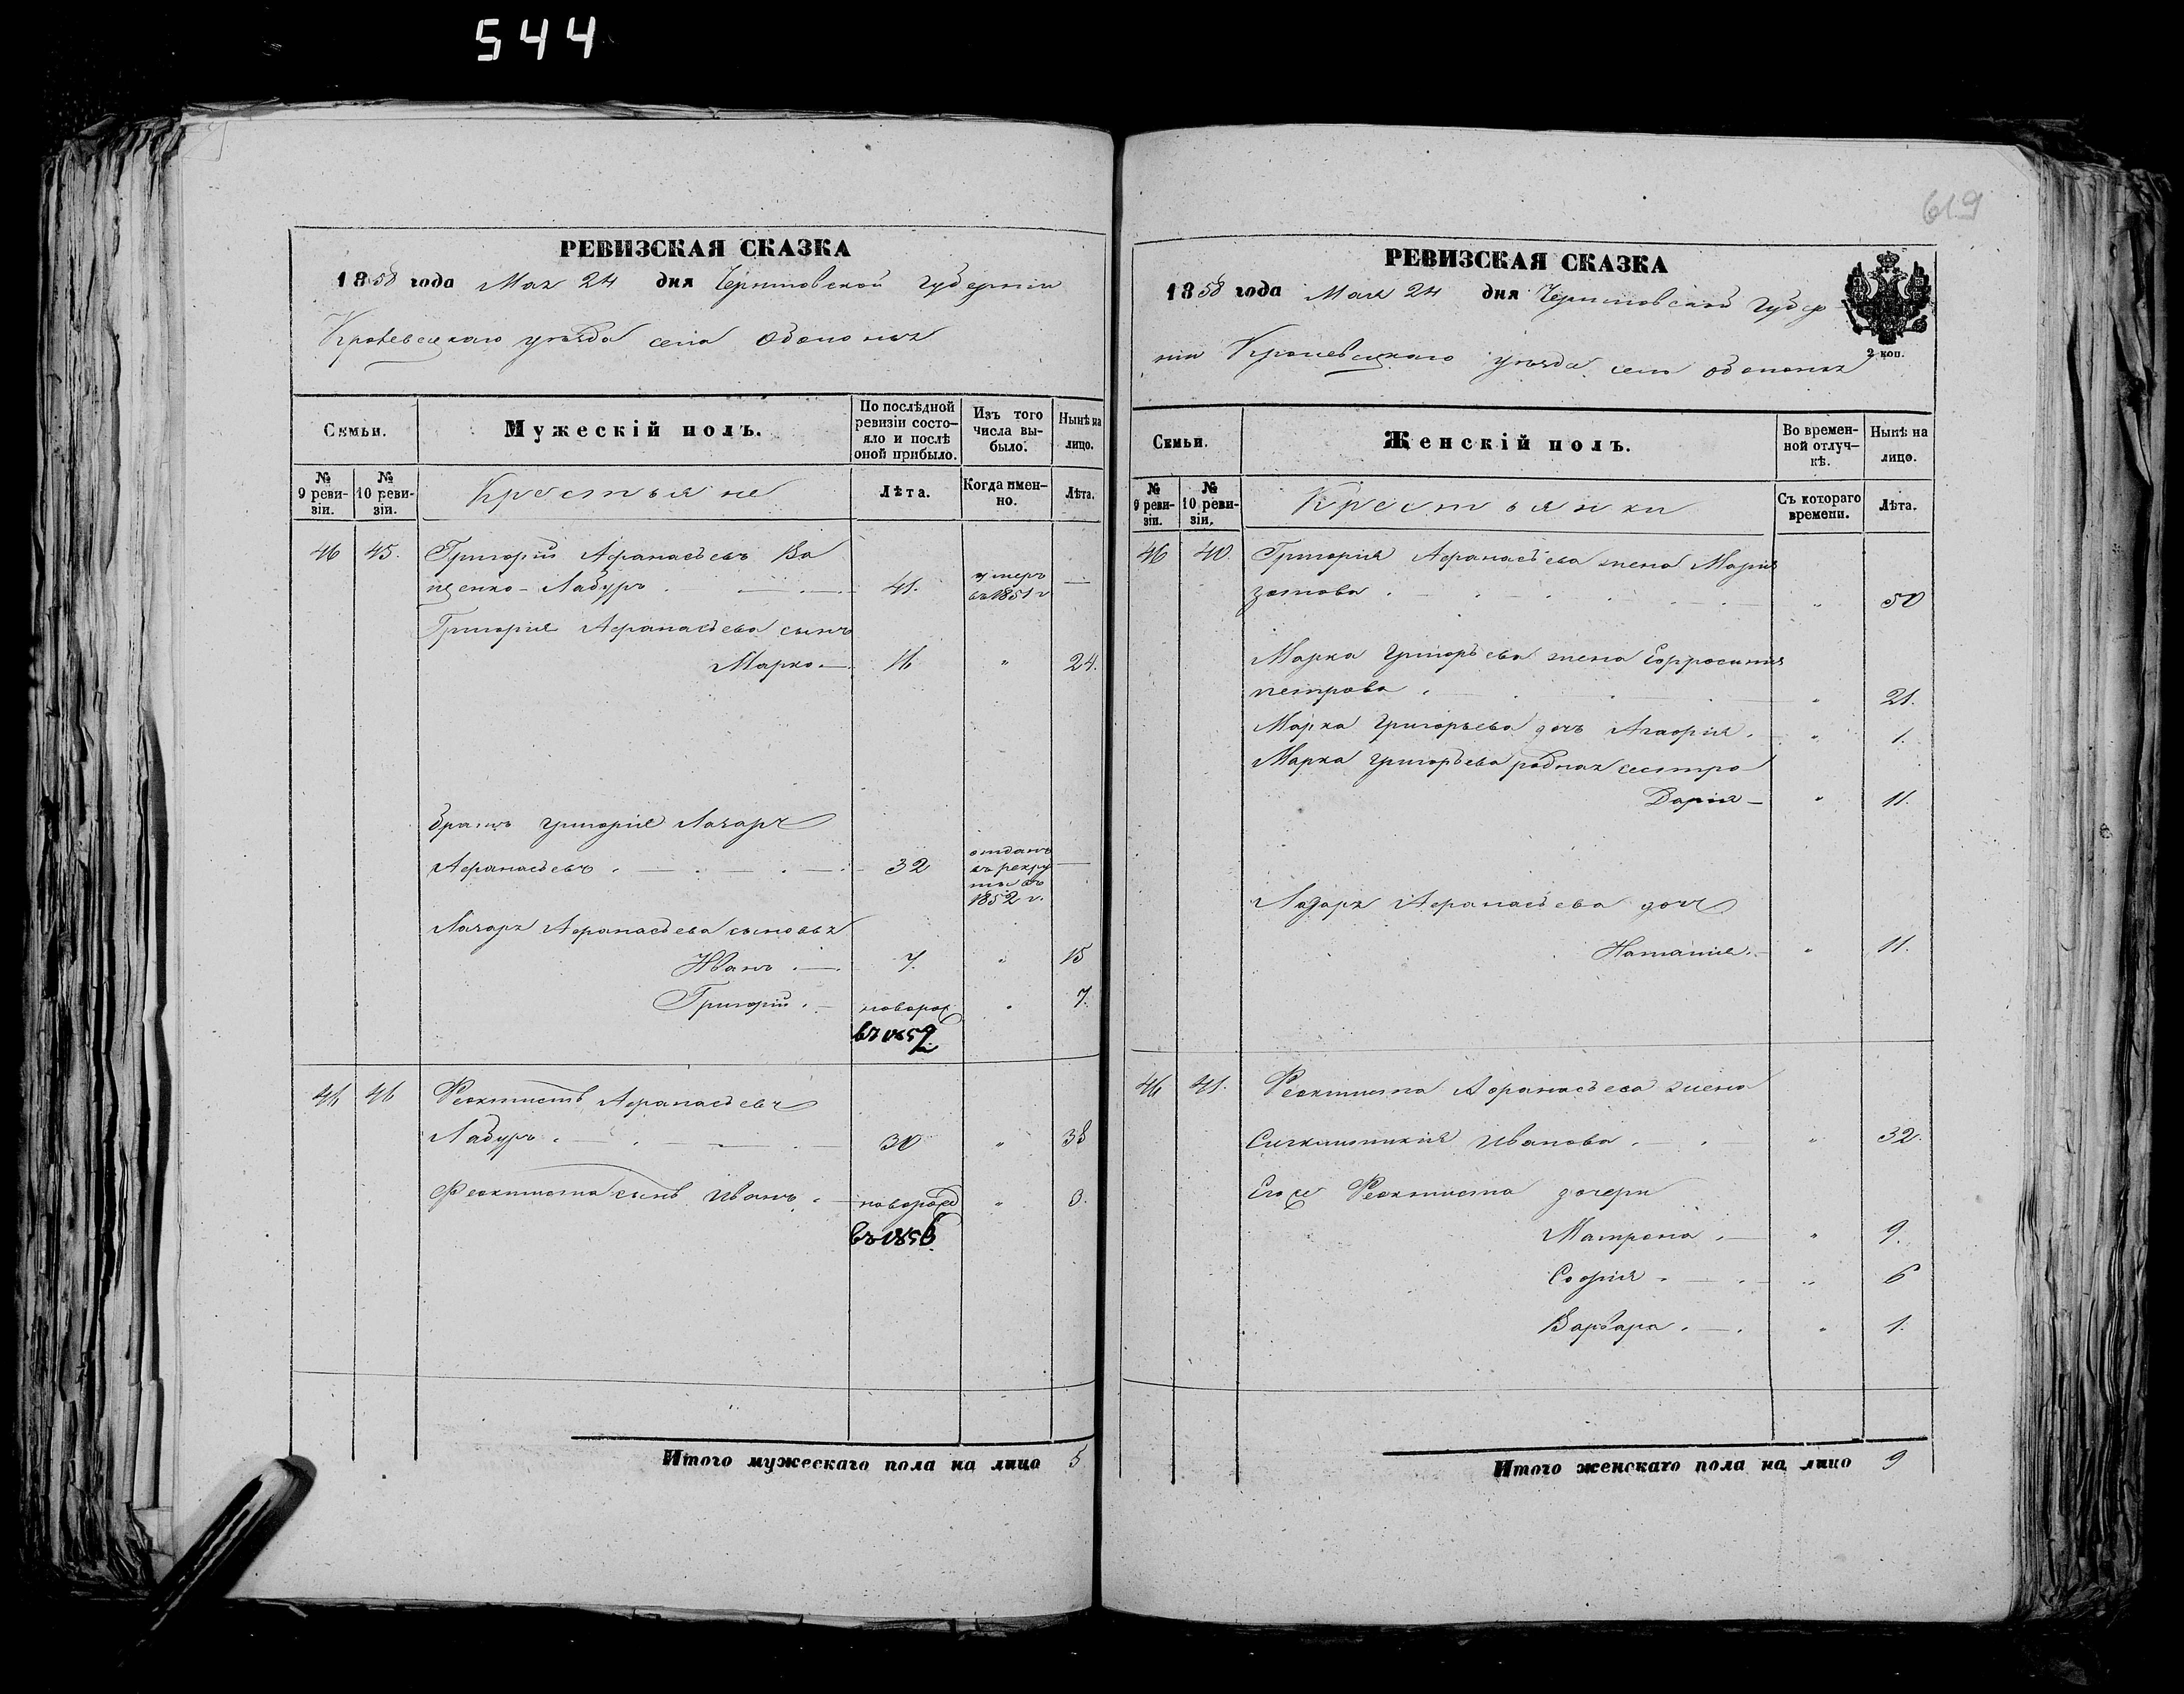 544
РЕВИЗСКАЯ СКАЗКА
1858 года Мая 24 дня Черниговской губерніи
Кролевецкаго уѣзда села Обтоновъ
Семьи.
Мужескій полъ.
По послѣдной ревизіи состояло и послѣ оной прибыло.
Изъ того числа выбыло.
Нынѣ на лицо.
№ 9 ревизіи.
№ 10 ревизіи.
Крестьяне
Лѣта.
Когда именно.
Лѣта.
46 45. Григорій Афанасьевъ Ва
щенко-Лабуръ 41. умеръ въ 1851 г —
Григорія Афанасьева сынъ
Марко 16 " 24.
братъ Григорія Лазарь
Афанасьевъ 32 отданъ въ рекруты въ 1852 г. —
Лазаря Афанасьева сыновья
Иванъ 7. " 15
Григорій новорож " 7.
46 46 Феоктистъ Афанасьевъ
Лабуръ 30 " 38
Феоктиста сынъ Иванъ новорожд " 3.
Итого мужескаго пола на лицо 5
619
РЕВИЗСКАЯ СКАЗКА
1858 года Мая 24 дня Черниговской губер
ніи Кролевецкаго уѣзда села
2 коп.
Семьи.
Женскій полъ.
Во временной отлучкѣ.
Нынѣ на лицо.
№ 9 ревизіи.
№ 10 ревизіи.
Крестьянки
Съ котораго времени.
Лѣта.
46 40. Григорія Афанасьева жена Марія
зотова " 50
Марка Григорьева жена Ефросинія
петрова " 21.
Марка Григорьева дочь Агафія " 1.
Марка Григорьева родная сестра
Дарія " 11.
Лазаря Афанасьева дочь
Наталия " 11.
46 41. Феоктиста Афанасьева жена
Иванова " 32.
Егоже Феоктиста дочери
Матрона " 9.
Софія " 6
Варвара " 1.
Итого женскаго пола на лицо 9